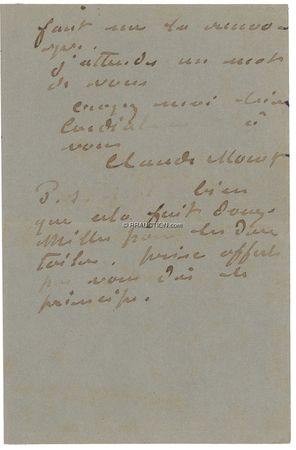 faut me la renvo-
yer.
J'attends un mot
de vous
croyez moi bien
Cordialement à
vous
Claude Monet
P.S. bien
que cela fait douze
Mille pour les deux
toiles. prix offert
par vous dès le
principe.
© RRAUCTION.COM